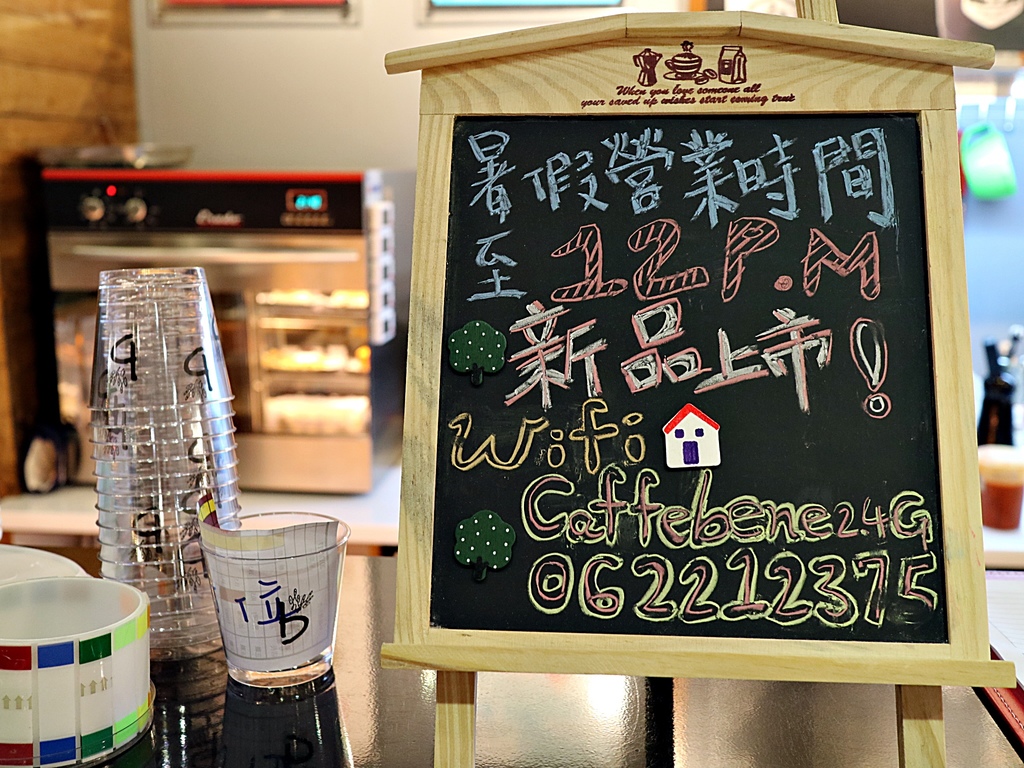 When you love someone all
your saved up wishes start coming true
暑假營業時間
至 12 P.M
新品上市!
Wifi
Caffebene2.4G
062212375
位
b